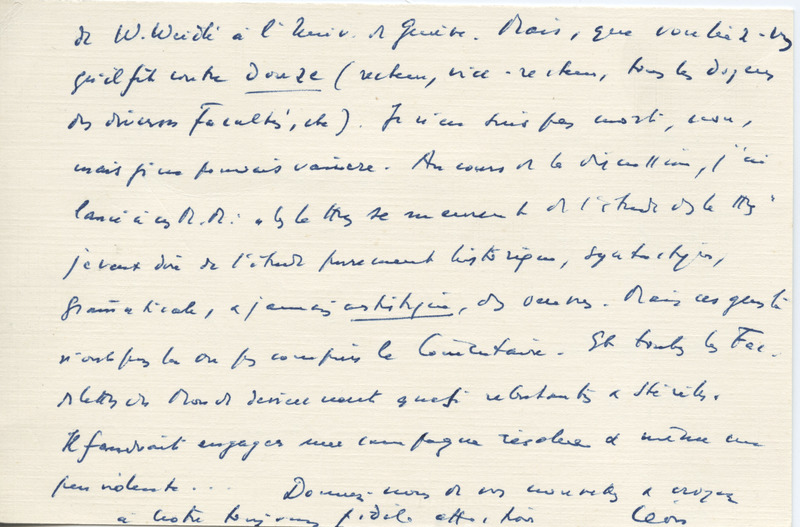 de W. Weidlé à l'Univ. de Genève. Mais, que vouliez-vs
qu'il fît contre douze (recteur, vice-recteur, tous les doyens
des diverses Facultés, etc). Je n'en suis pas mort, non,
mais je ne pouvais vaincre. Au cours de la discussion, j'ai
lancé à ces M.M.: "les lettres se meurent de l'étude des lettres"
je veux dire de l'étude purement historique, syntactique,
grammaticale, et jamais esthétique, des oeuvres. Mais ces gens-là
n'ont pas lu ou pas compris le Commentaire. Et toutes les Fac.
de lettres du Monde deviennent quasi rebutantes et stériles.
Il faudrait engager une campagne résolue et même un
peu violente... Donnez-nous de vos nouvelles et croyez
à notre toujours fidèle affection